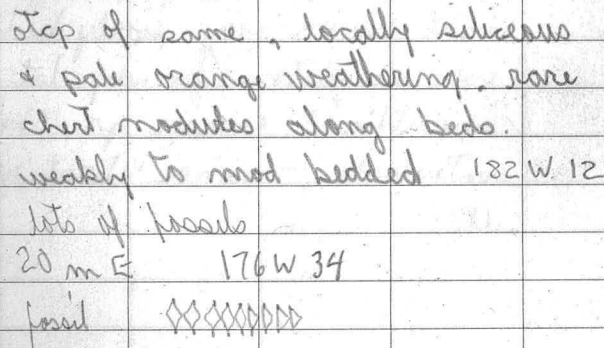 otcp of same, locally siliceous
& pale orange weathering. rare
chert nodules along beds.
weakly to mod bedded 182 W 12
lots of fossils
20 m E 176 W 34
fossil